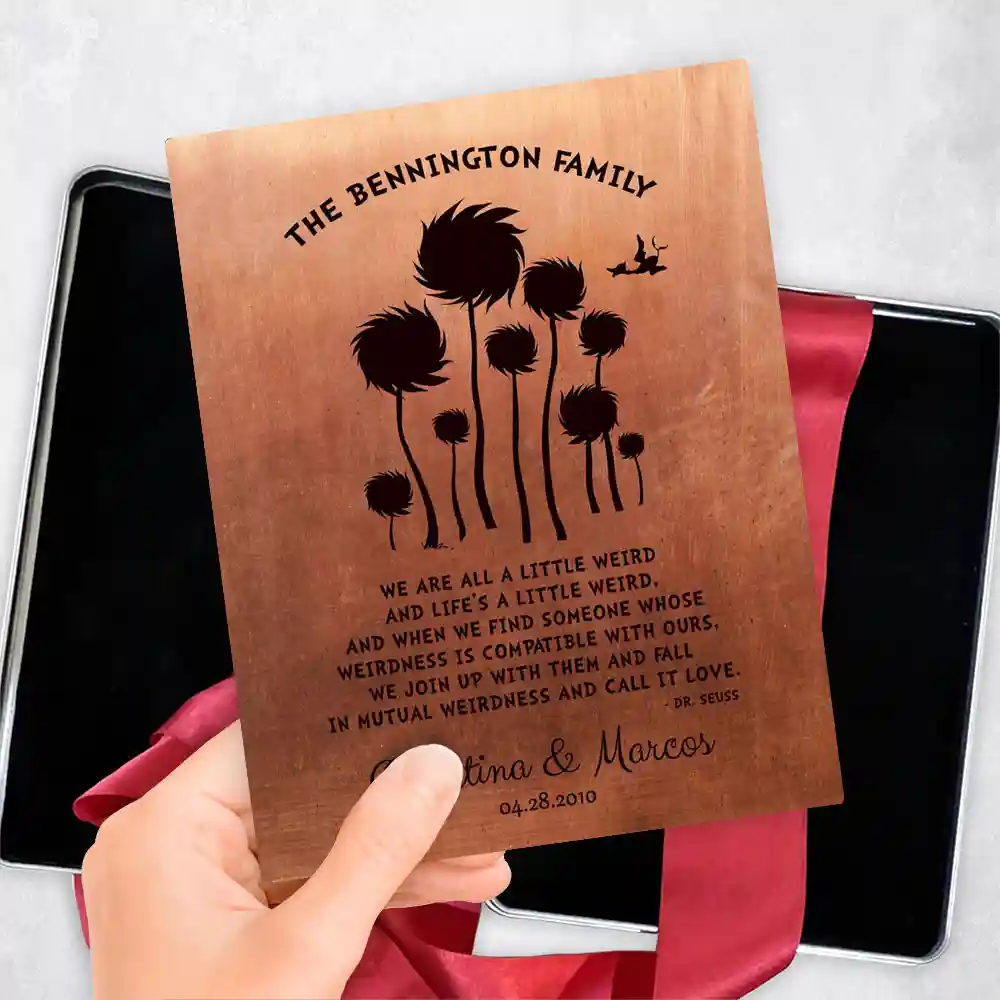 THE BENNINGTON FAMILY
WE ARE ALL A LITTLE WEIRD
AND LIFE'S A LITTLE WEIRD,
AND WHEN WE FIND SOMEONE WHOSE
WEIRDNESS IS COMPATIBLE WITH OURS,
WE JOIN UP WITH THEM AND FALL
IN MUTUAL WEIRDNESS AND CALL IT LOVE.
- DR. SEUSS
& Marcos
04.28.2010